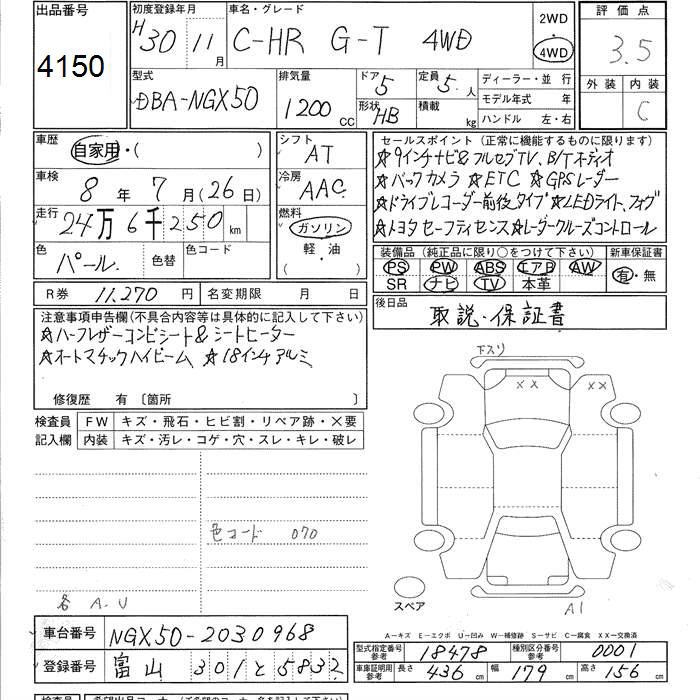 出品番号 4150
初度登録年月 H30年11月
車名・グレード C-HR G-T 4WD
2WD 4WD
評価点 3.5
外装 内装 C
型式 DBA-NGX50
排気量 1200 CC
ドア 5 形状 HB
定員 5.人 積載 kg
ディーラー・並行
モデル年式 年
ハンドル 左・右
車歴 自家用・( )
シフト AT
車検 8年7月(26日)
冷房 AAC
走行 24万6千250km
燃料 ガソリン 軽・油 ( )
色 パール. 色替 色コード
R券 11,270円 名変期限 月 日
セールスポイント (正常に機能するものに限ります)
☆9インチナビ&フルセグTV、B/Tオーディオ
☆バックカメラ ☆ETC ☆GPSレーダー
☆ドライブレコーダー前後タイプ ☆LEDライト、フォグ
☆トヨタセーフティセンス☆レーダークルーズコントロール
装備品 (純正品に限り○をつけて下さい) 新車保証書
PS PW ABS エアB AW 有・無
SR ナビ TV 本革
後日品 取説・保証書
注意事項申告欄(不具合内容等は具体的に記入して下さい)
☆ハーフレザーコンビシート&シートヒーター
☆オートマチックハイビーム ☆18インチアルミ
修復歴 有 〔箇所 〕
検査員記入欄 FW キズ・飛石・ヒビ割・リペア跡・×要
内装 キズ・汚レ・コゲ・穴・スレ・キレ・破レ
色コード 070
各 A.U
下スリ
XX XX
スペア
A1
A—キズ E—エクボ U—凹み W—補修跡 S—サビ C—腐食 XX—交換済
車台番号 NGX50-2030968
登録番号 富山 301と5832
型式指定番号参考 18478 種別区分番号参考 0001
車庫証明用参考 長さ 436cm 幅 179cm 高さ 156cm